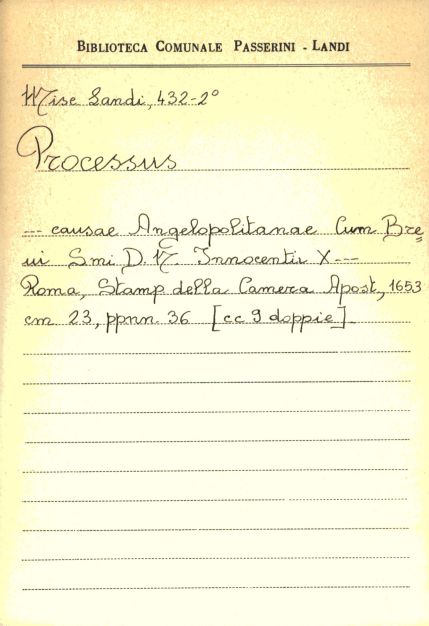 BIBLIOTECA COMUNALE PASSERINI - LANDI
Misc Landi, 432-2°
Processus
--- causae Angelopolitanae Cum Bre=
ui Smi D. N. Innocentii X ---
Roma, Stamp della Camera Apost, 1653
cm 23, ppnn 36 [cc 9 doppie]